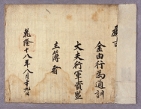 金由行爲通訓
大夫行軍資監
主簿者
乾隆十八年八月